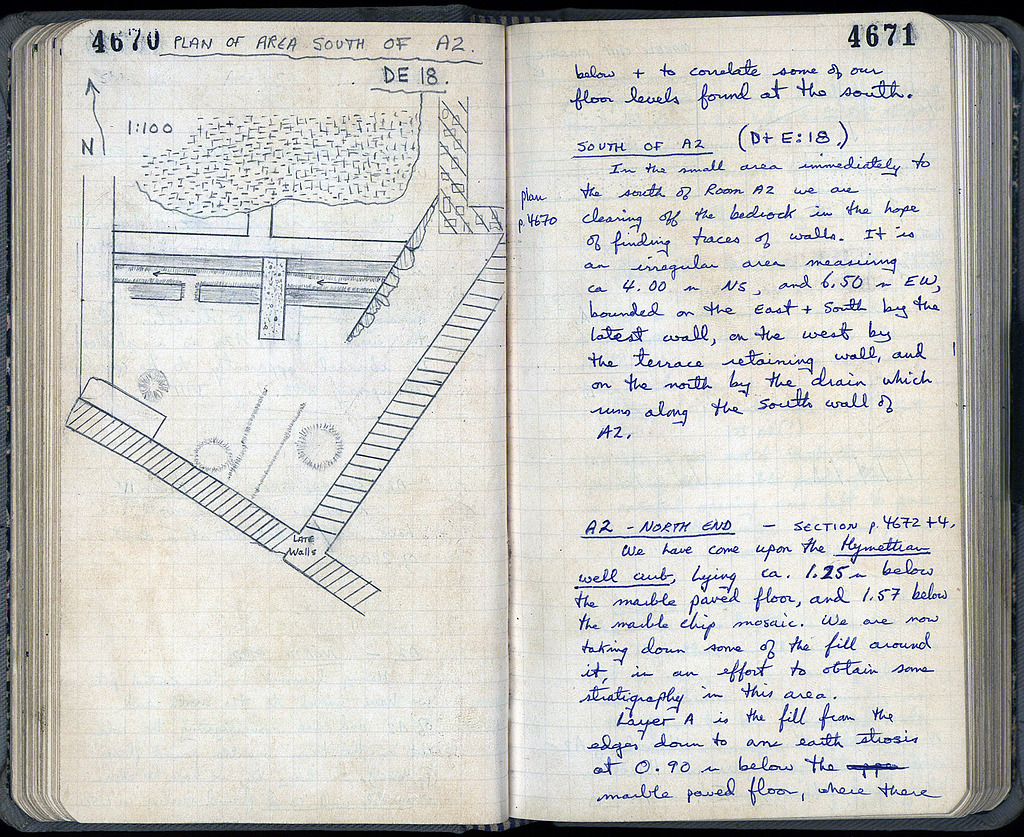 4670 PLAN OF AREA SOUTH OF A2.
DE 18.
1:100
N
LATE
Walls
4671
below + to correlate some of our
floor levels found at the south.
SOUTH OF A2 (D+E:18)
In the small area immediately to
plan
p. 4670
the south of Room A2 we are
clearing off the bedrock in the hope
of finding traces of walls. It is
an irregular area measuring
ca 4.00 m NS, and 6.50 m EW,
bounded on the East + South by the
latest wall, on the west by
the terrace retaining wall, and
on the north by the drain which
runs along the South wall of
A2.
A2 - NORTH END - SECTION p. 4672+4.
We have come upon the Hymettian
well curb, lying ca. 1.25 m below
the marble paved floor, and 1.57 below
the marble chip mosaic. We are now
taking down some of the fill around
it, in an effort to obtain some
stratigraphy in this area.
Layer A is the fill from the
edges down to an earth strosis
at 0.90 m below the
marble paved floor, where there